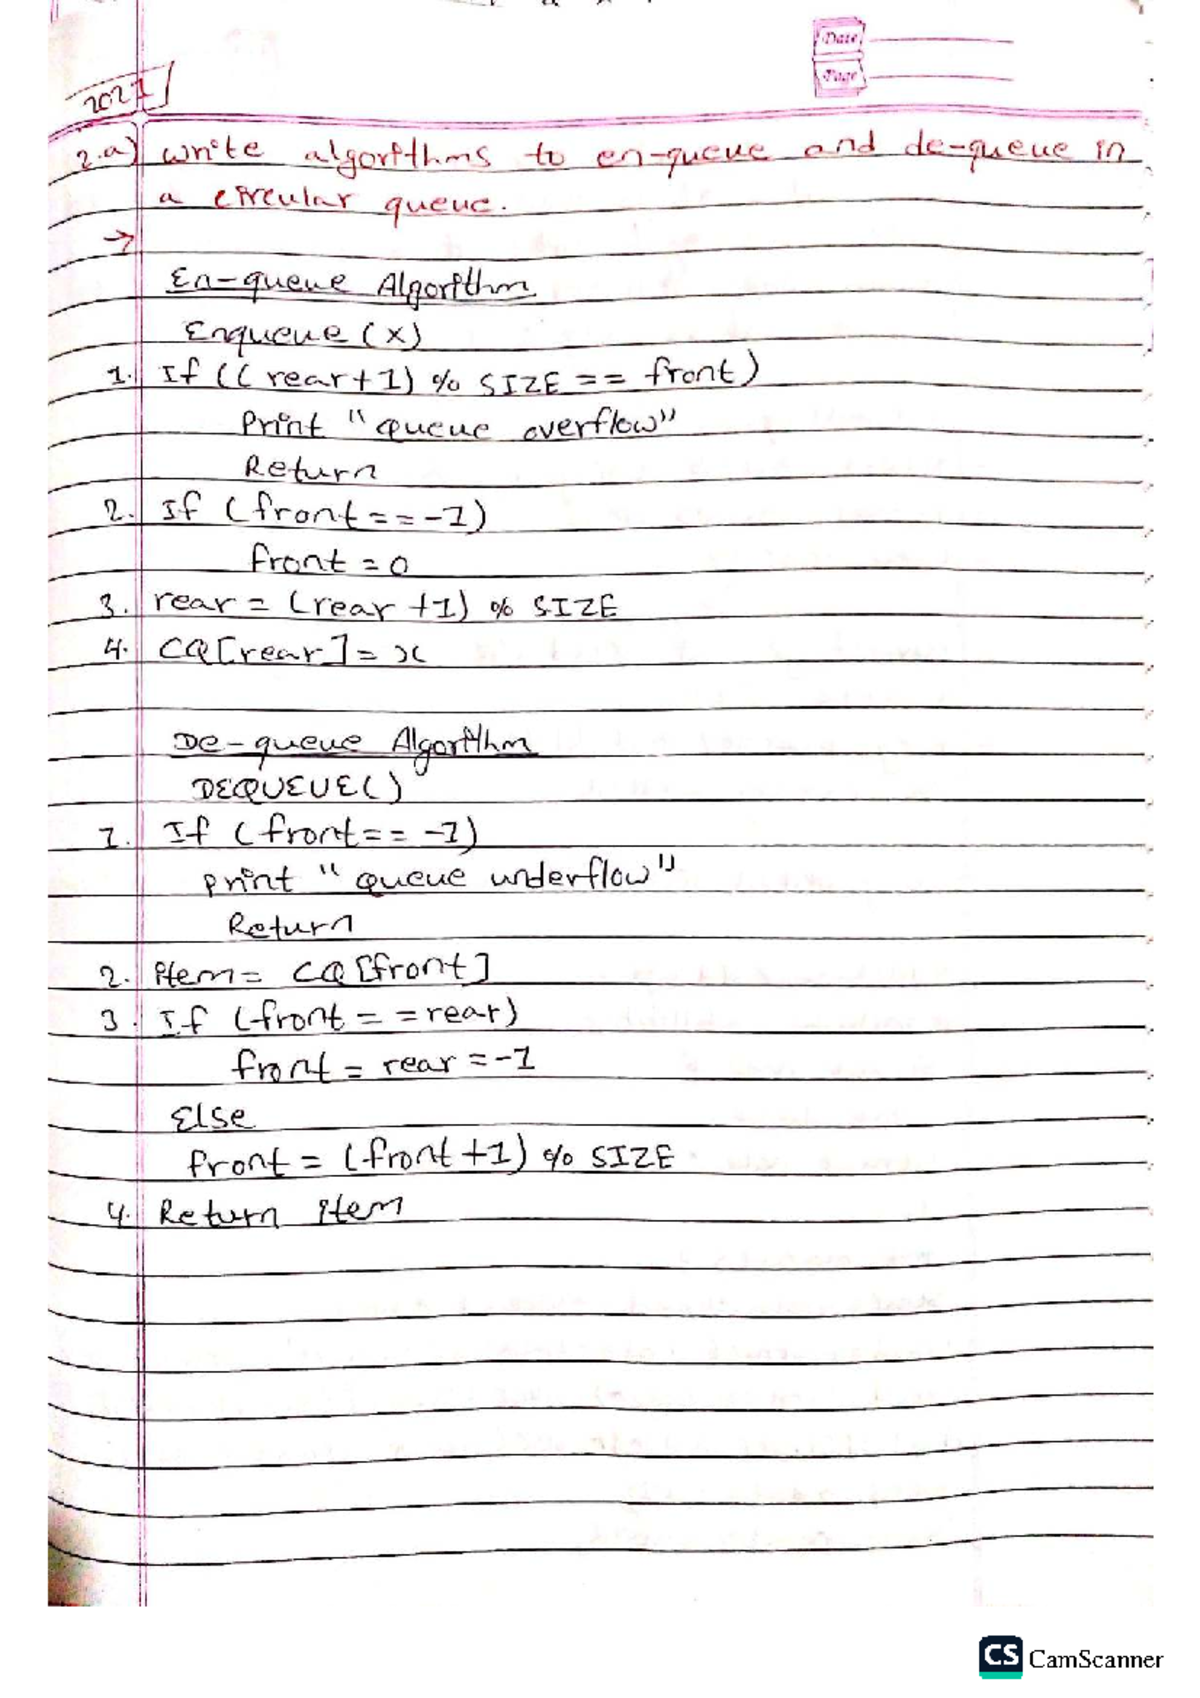 Date
Page
2021
2.a) write algorithms to en-queue and de-queue in
a circular queue.
→
En-queue Algorithm
Enqueue (x)
1. If ((rear+1) % SIZE == front)
Print "queue overflow"
Return
2. If (front==-1)
front = 0
3. rear = (rear +1) % SIZE
4. CQ[rear] = x
De-queue Algorithm
DEQUEUE()
1. If (front== -1)
print "queue underflow"
Return
2. item= CQ[front]
3. If (front = =rear)
front = rear =-1
Else
front = (front +1) % SIZE
4. Return item
CS CamScanner